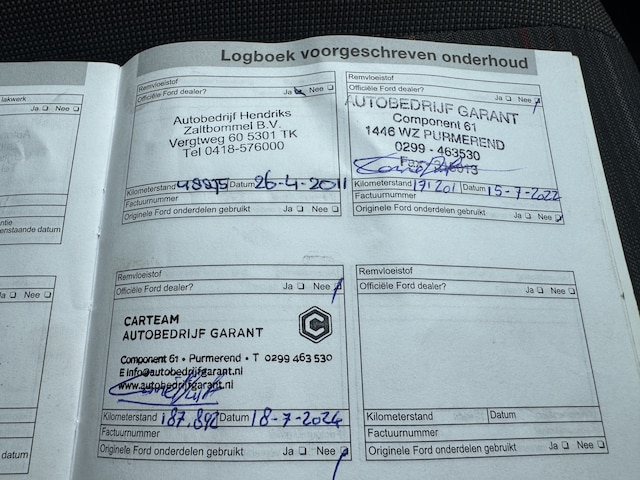 Logboek voorgeschreven onderhoud
lakwerk
Ja ❑ Nee ❑
enstaande datum
Ja ❑ Nee ❑
datum
Remvloeistof
Officiële Ford dealer? Ja ❑ Nee ❑
Autobedrijf Hendriks
Zaltbommel B.V.
Vergtweg 60 5301 TK
Tel 0418-576000
Kilometerstand Datum 26-4-2011
Factuurnummer
Originele Ford onderdelen gebruikt Ja ❑ Nee ❑
Remvloeistof
Officiële Ford dealer? Ja ❑ Nee ❑
AUTOBEDRIJF GARANT
Component 61
1446 WZ PURMEREND
0299 - 463530
Kilometerstand Datum 15-7-2022
Factuurnummer
Originele Ford onderdelen gebruikt Ja ❑ Nee ❑
Remvloeistof
Officiële Ford dealer? Ja ❑ Nee ❑
CARTEAM
AUTOBEDRIJF GARANT
Component 61 • Purmerend • T 0299 463 530
E info@autobedrijfgarant.nl
www.autobedrijfgarant.nl
Kilometerstand 187.892 Datum 18-7-2024
Factuurnummer
Originele Ford onderdelen gebruikt Ja ❑ Nee ❑
Remvloeistof
Officiële Ford dealer? Ja ❑ Nee ❑
Kilometerstand Datum
Factuurnummer
Originele Ford onderdelen gebruikt Ja ❑ Nee ❑